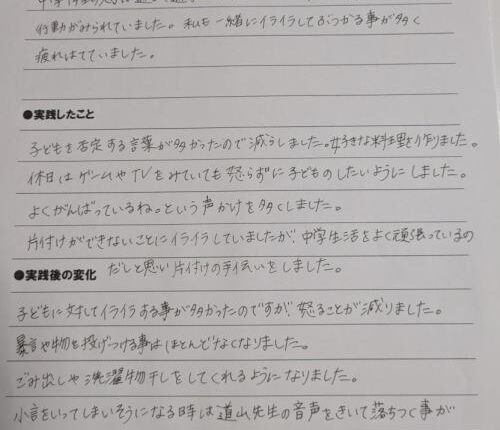 行動がみられていました。私も一緒にイライラしてぶつかる事が多く
疲れはてていました。
●実践したこと
子どもを否定する言葉が多かったので減らしました。好きな料理を作りました。
休日はゲームやTVをみていても怒らずに子どものしたいようにしました。
よくがんばっているね。という声かけを多くしました。
片付けができないことにイライラしていましたが、中学生活をよく頑張っているの
だしと思い片付けの手伝いをしました。
●実践後の変化
子どもに対してイライラする事が多かったのですが、怒ることが減りました。
暴言や物を投げつける事はほとんどなくなりました。
ごみ出しや洗濯物干しをしてくれるようになりました。
小言をいってしまいそうになる時は道山先生の音声をきいて落ちつく事が